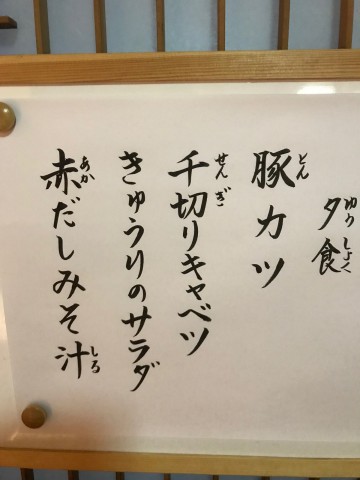 夕食
ゆうしょく
豚カツ
とん
千切りキャベツ
せんぎ
きゅうりのサラダ
赤だしみそ汁
あか
しる